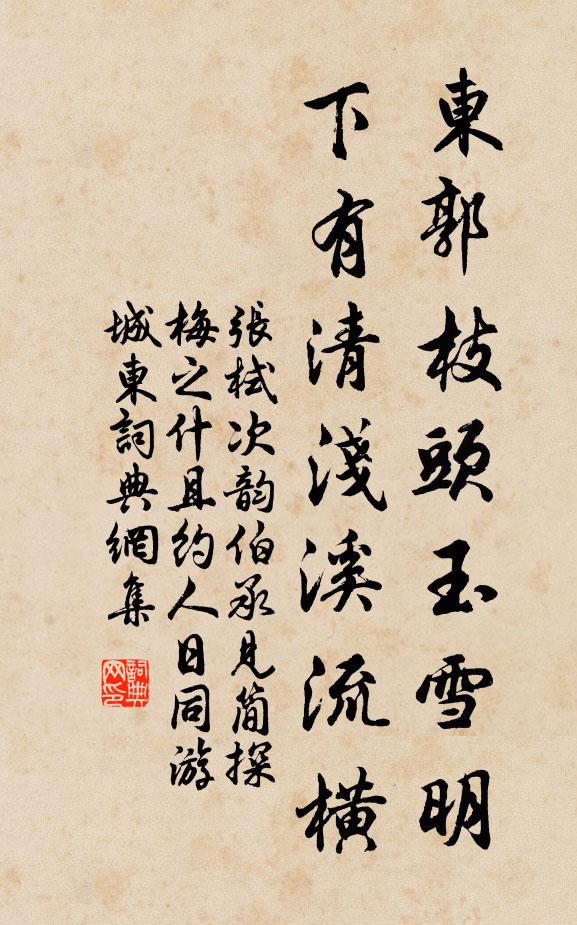 東郭枝頭玉雪明
下有清淺溪流橫
張栻次韵伯承見簡探
梅之什且約人日同游
城東詞典網集
詞典
网印